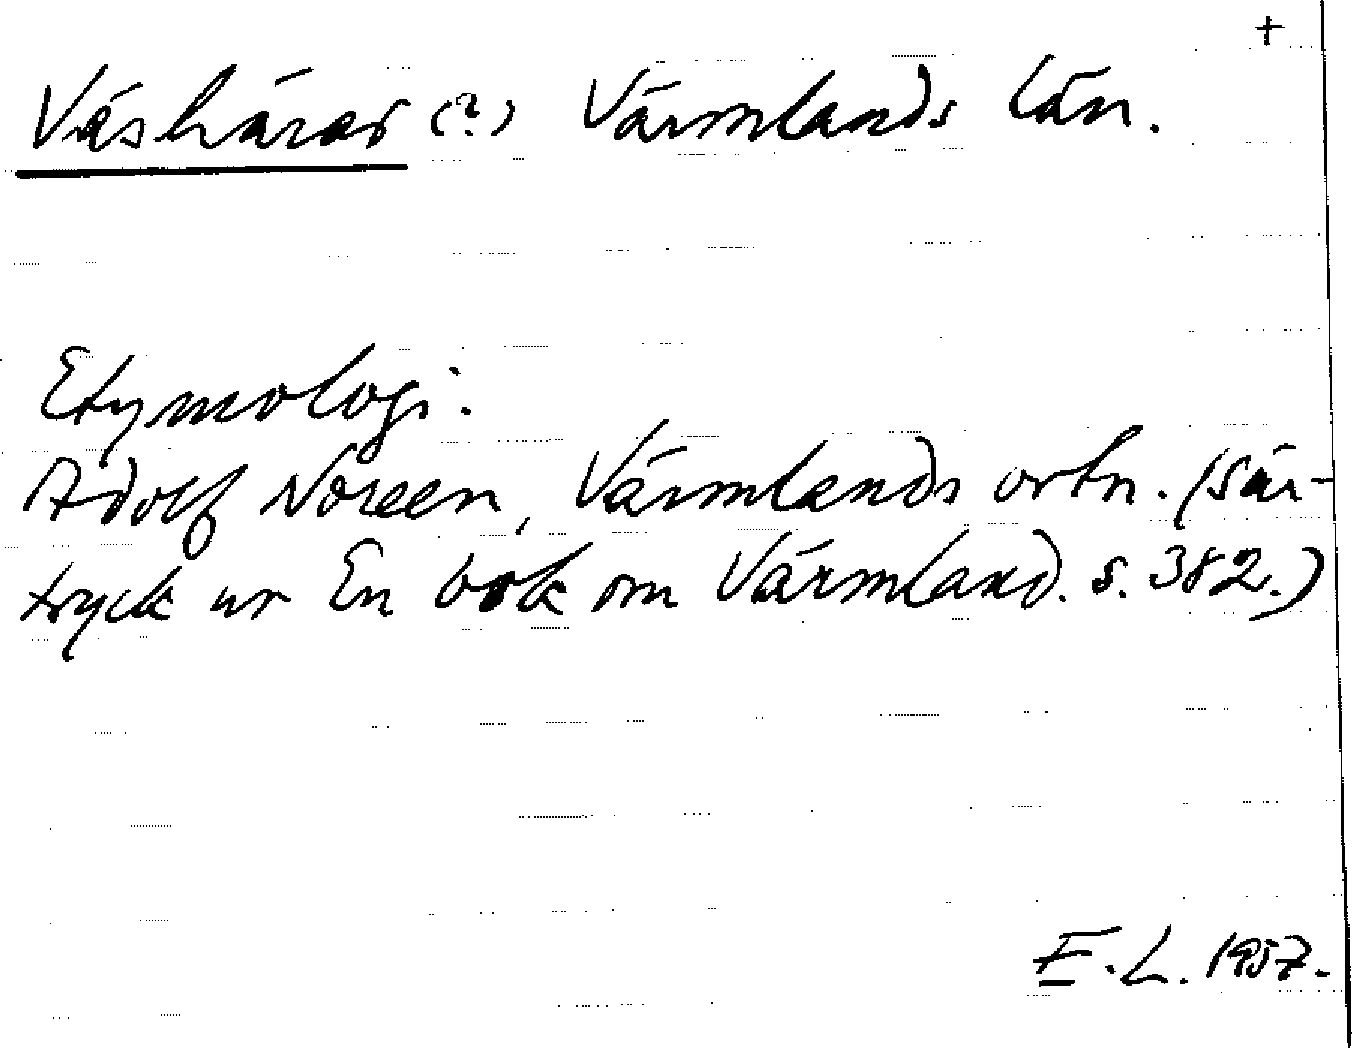 +
Väshärar (?) Värmlands län.
Etymologi:
Adolf Noreen, Värmlands ortn. (Sär-
tryck ur En bok om Värmland. s. 382.)
E.L. 1957.